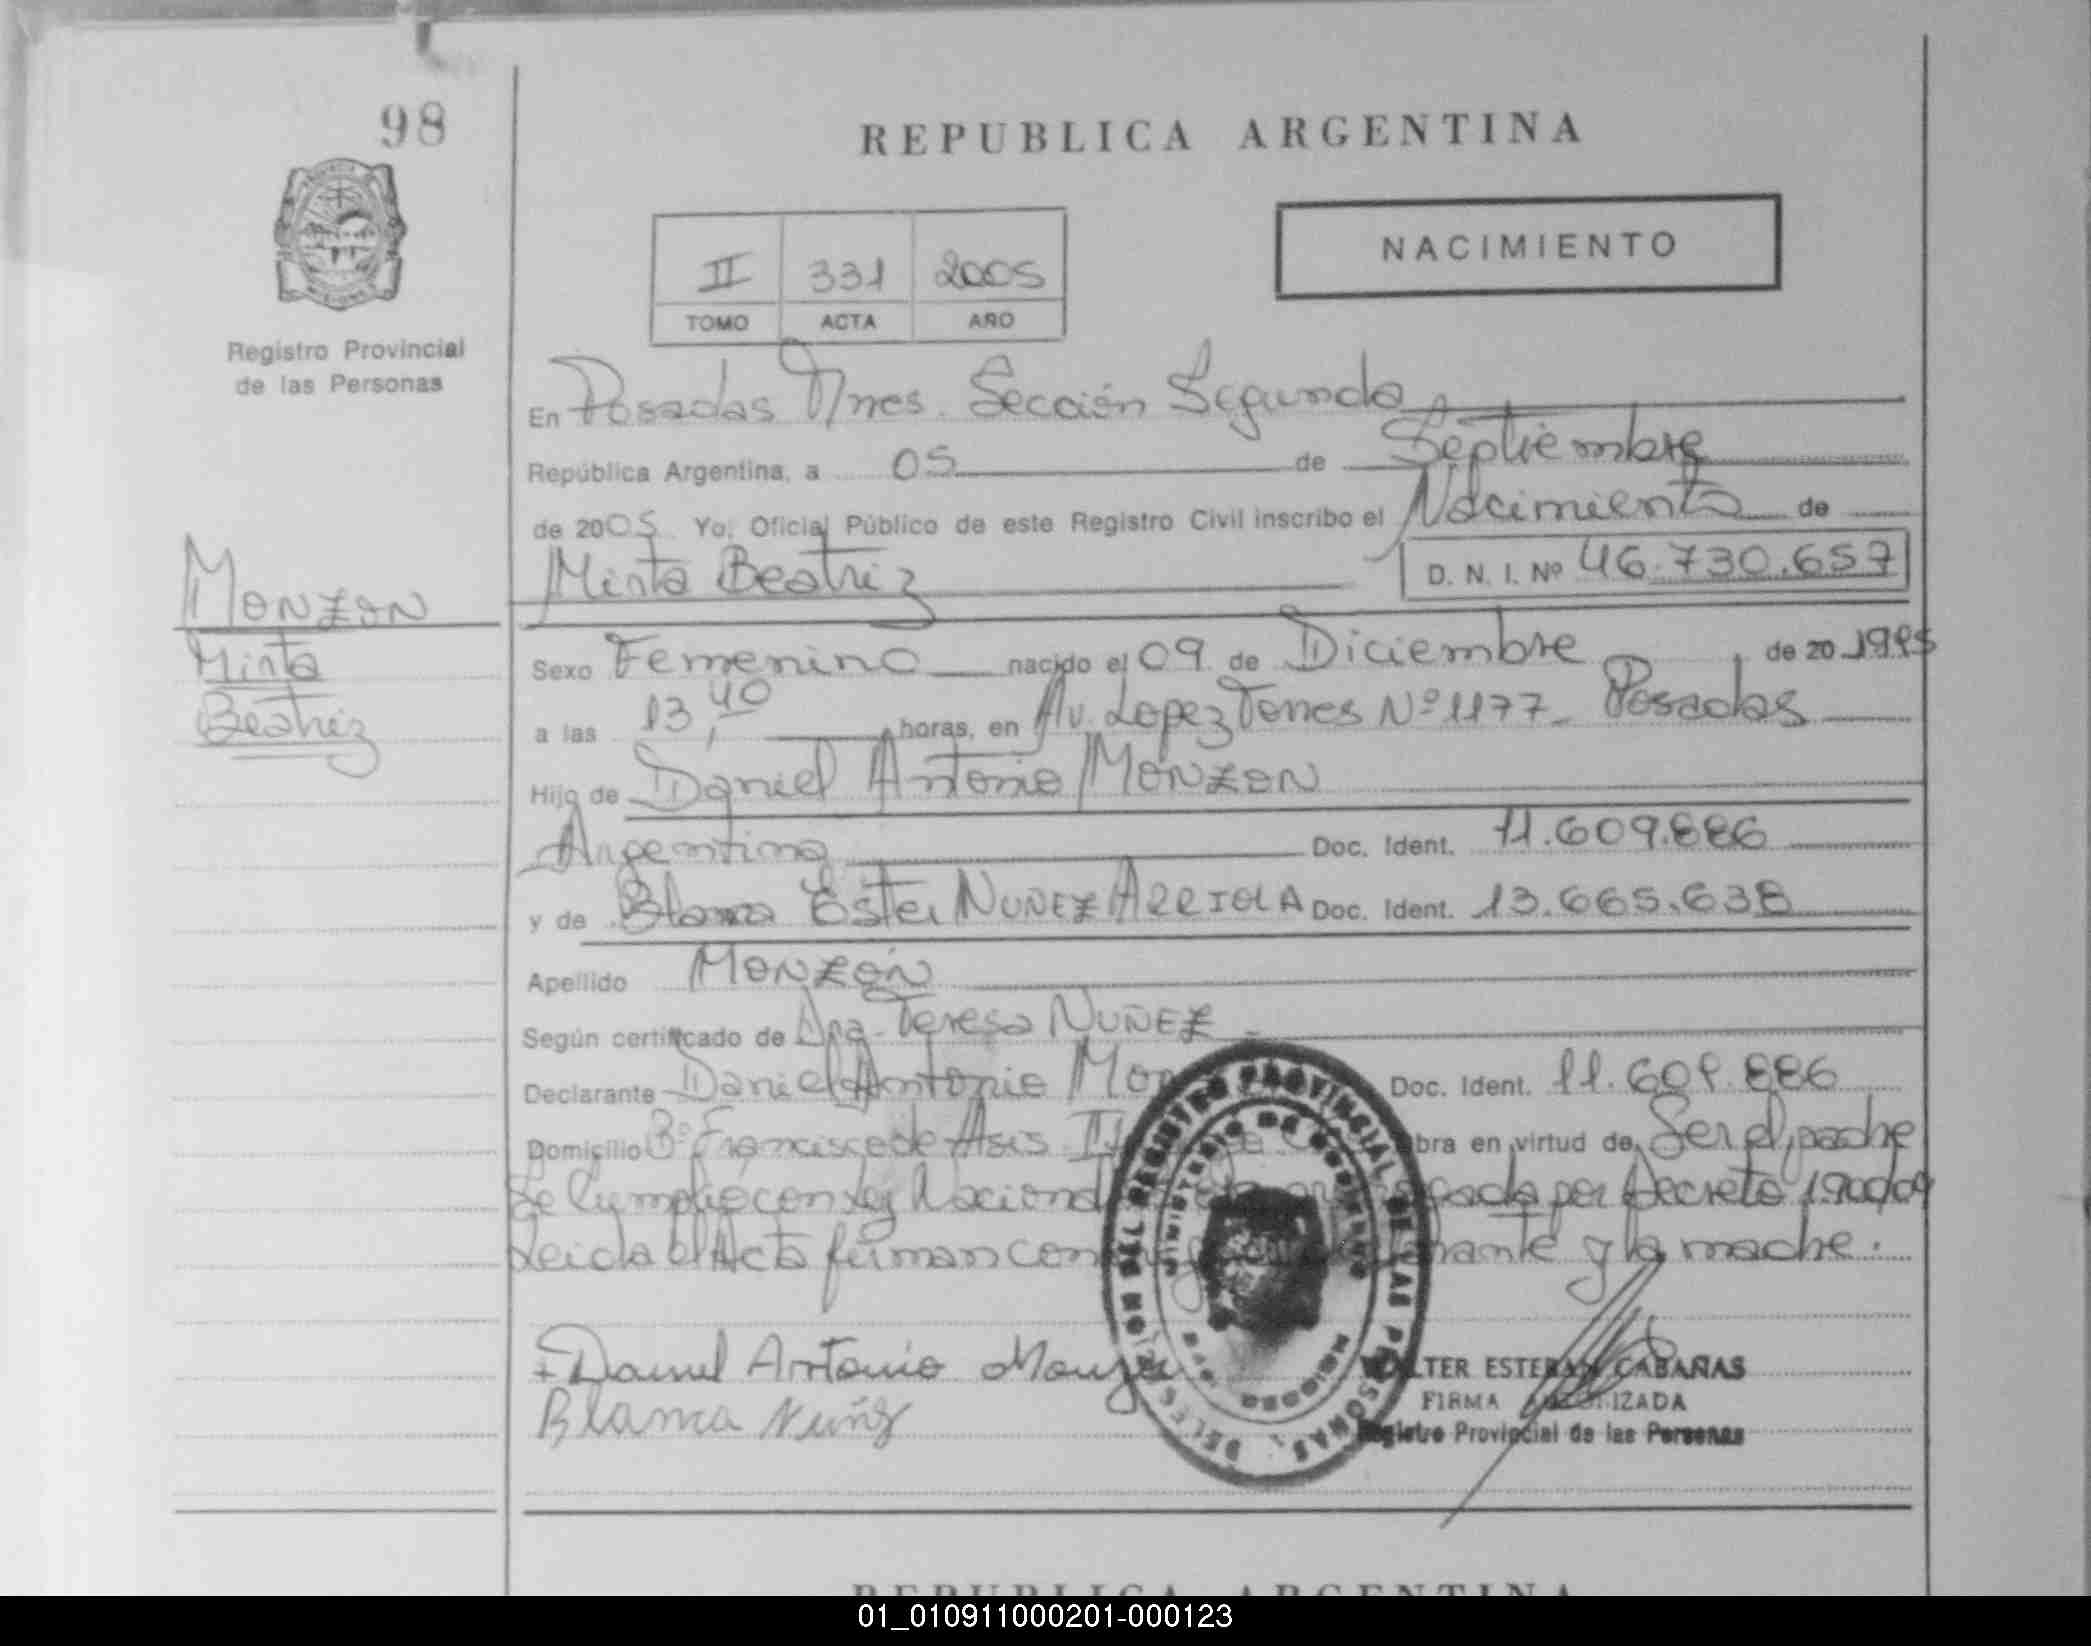 98
REPUBLICA ARGENTINA
NACIMIENTO
II 331 2005
TOMO ACTA AÑO
Registro Provincial
de las Personas
En Posadas Mnes. Sección Segunda
República Argentina, a 05 de Septiembre
de 2005 Yo, Oficial Público de este Registro Civil inscribo el Nacimiento de
Mirta Beatriz D. N. I. Nº 46.730.657
MONZON
Mirta
Beatriz
Sexo Femenino nacido el 09 de Diciembre de 20 1995
a las 13,40 horas, en Av. Lopez Torres Nº 1177 - Posadas
Hijo de Daniel Antonio MONZON
Argentina Doc. Ident. 11.609.886
y de Blanca Ester NUÑEZ ARRIOLA Doc. Ident. 13.665.638
Apellido MONZÓN
Según certificado de Dra. Teresa NUÑEZ -
Declarante Daniel Antonio Doc. Ident. 11.609.886
Domicilio Bº Francisco de Asis obra en virtud de Ser el padre
Se Cumplio con Ley Nacional por Decreto 190/09
Leida el Acta firman con y la madre.
+ Daniel Antonio Monzon
Blanca Nuñez
DELEGACIÓN DEL REGISTRO PROVINCIAL DE LAS PERSONAS
MINISTERIO DE GOBIERNO
WALTER ESTEBAN CABAÑAS
FIRMA AUTORIZADA
Registro Provincial de las Personas
REPUBLICA ARGENTINA
01_010911000201-000123